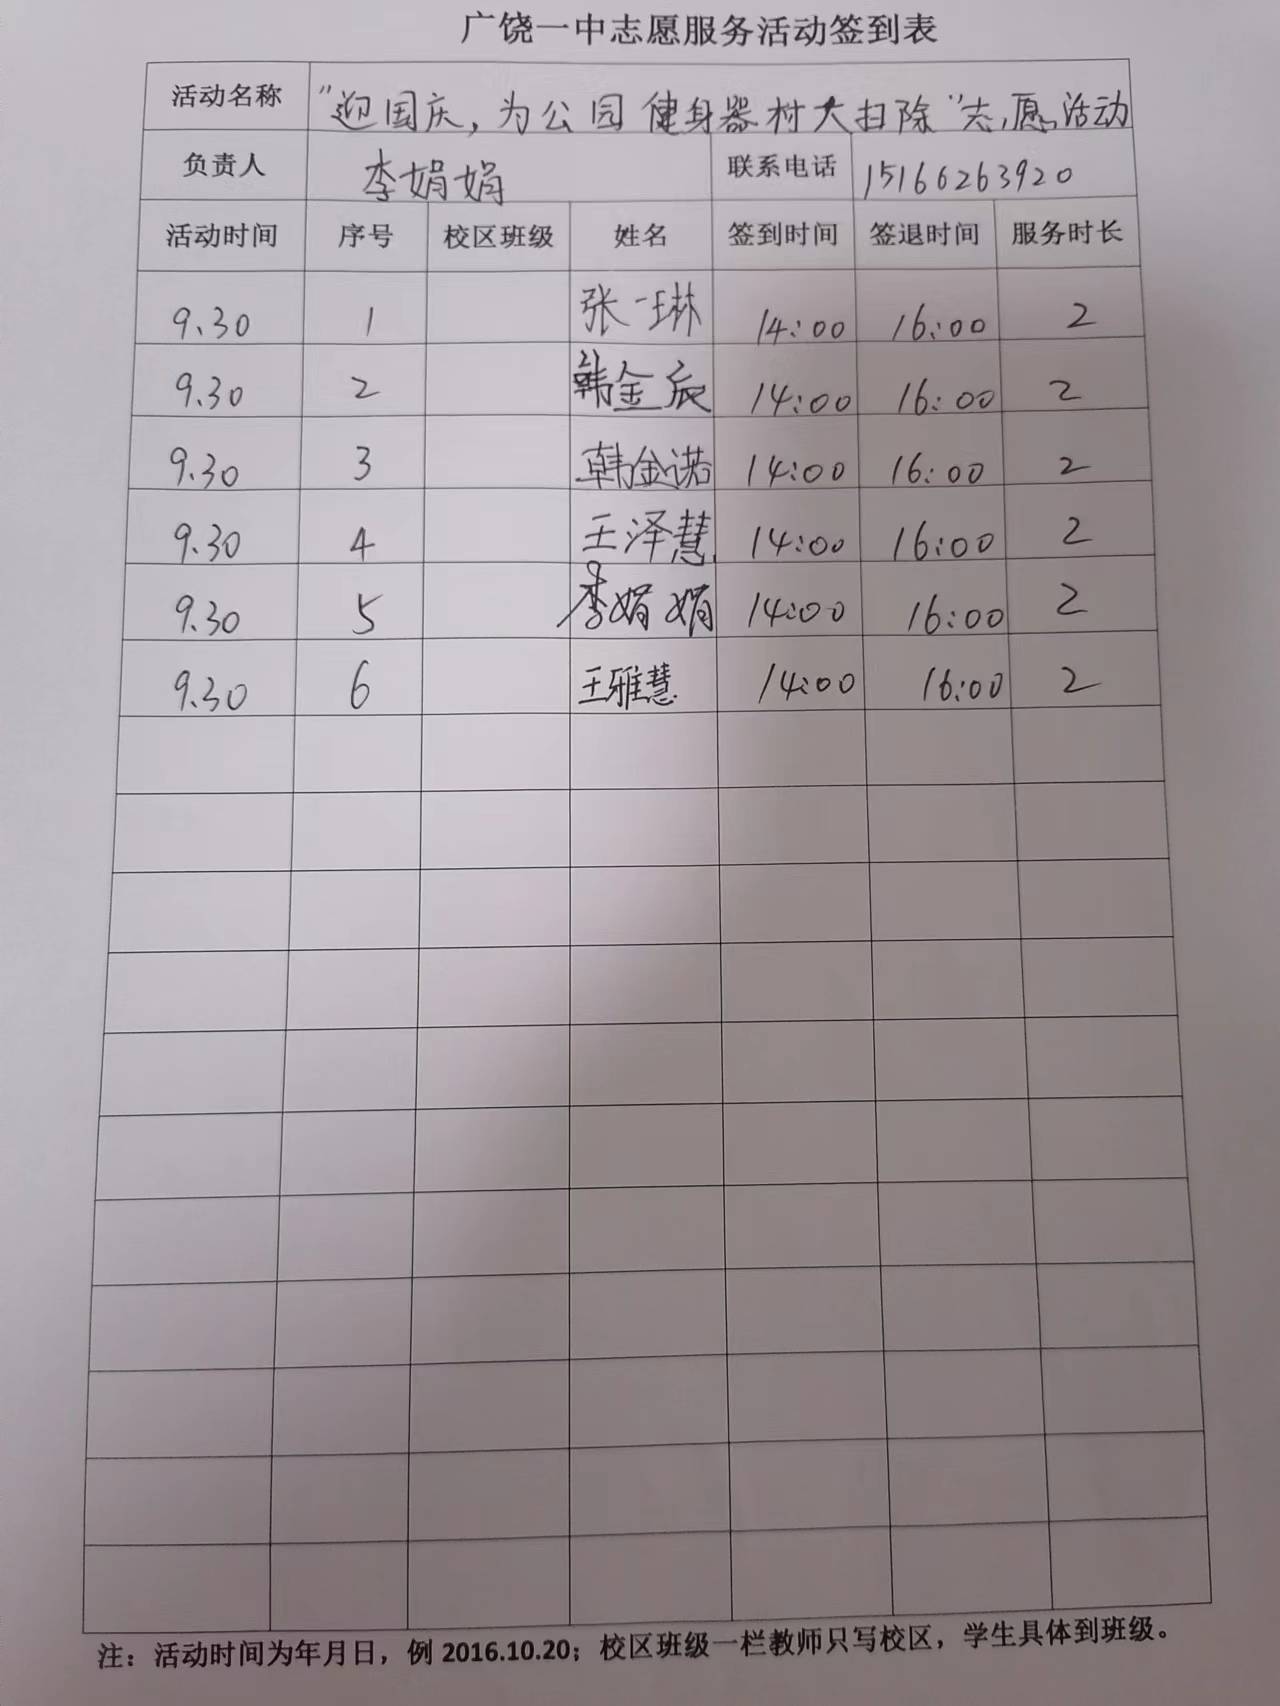 广饶一中志愿服务活动签到表
活动名称 "迎国庆，为公园健身器材大扫除"志愿活动
负责人 李娟娟 联系电话 15166263920
活动时间 序号 校区班级 姓名 签到时间 签退时间 服务时长
9.30 1 张一琳 14:00 16:00 2
9.30 2 韩金辰 14:00 16:00 2
9.30 3 韩金诺 14:00 16:00 2
9.30 4 王泽慧 14:00 16:00 2
9.30 5 李娟娟 14:00 16:00 2
9.30 6 王雅慧 14:00 16:00 2
注：活动时间为年月日，例 2016.10.20；校区班级一栏教师只写校区，学生具体到班级。